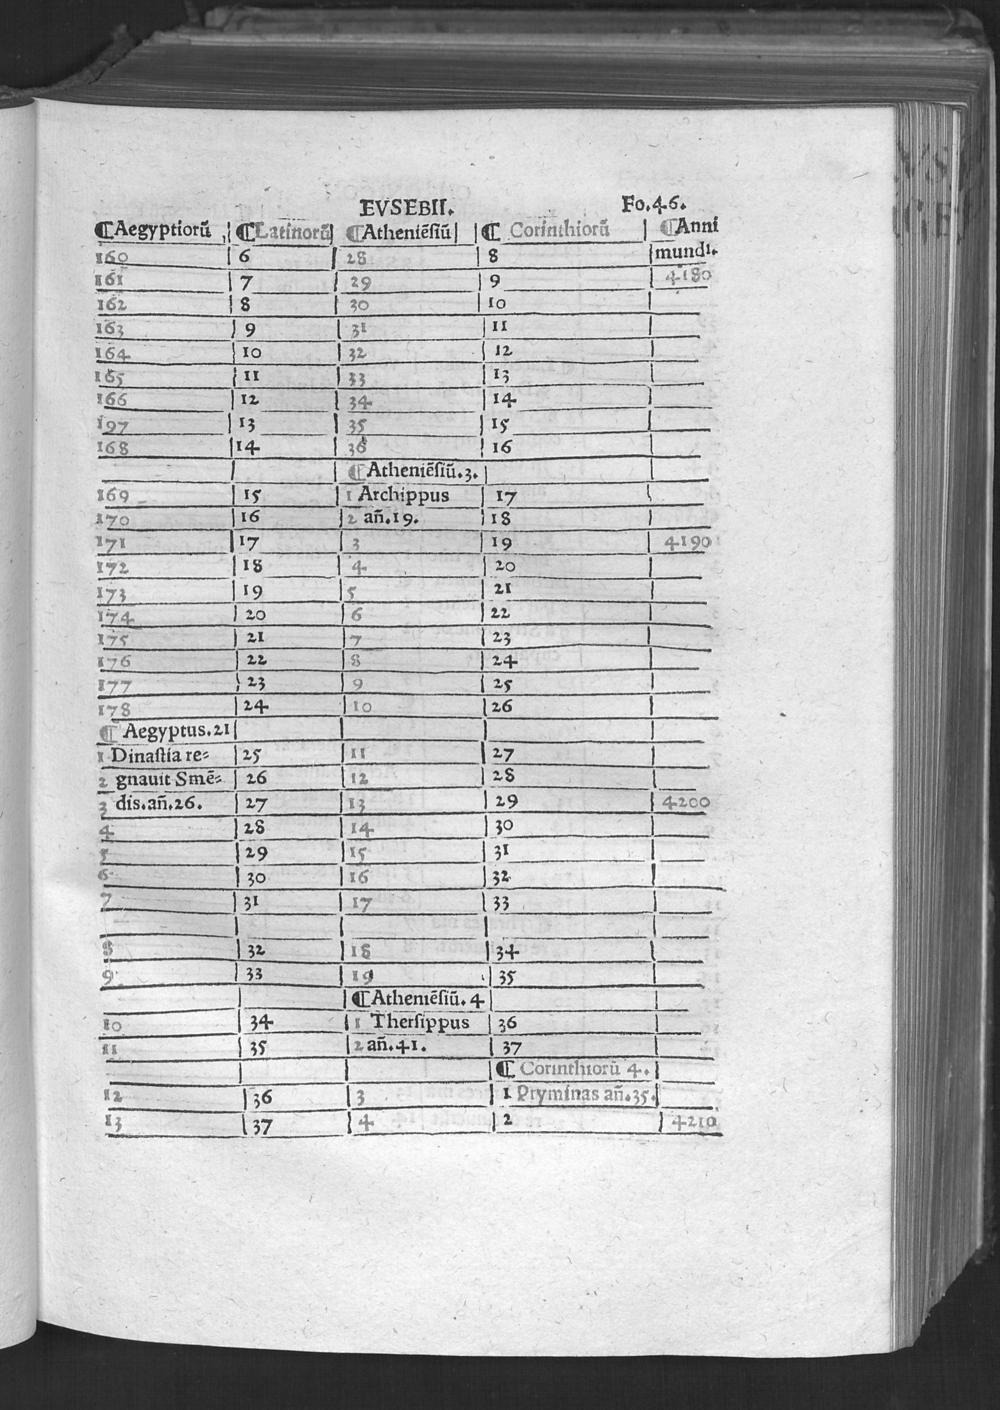 EVSEBII. Fo.46.
¶Aegyptiorū ¶Latinorū ¶Atheniēsiū ¶ Corinthiorū ¶Anni
160 6 28 8 mundi.
161 7 29 9 4180
162 8 30 10
163 9 31 11
164 10 32 12
165 11 33 13
166 12 34 14
197 13 35 15
168 14 36 16
¶Atheniēsiū.3.
169 15 1 Archippus 17
170 16 2 añ.19. 18
171 17 3 19 4190
172 18 4 20
173 19 5 21
174 20 6 22
175 21 7 23
176 22 8 24
177 23 9 25
178 24 10 26
¶ Aegyptus.21
1 Dinaſtia re⸗ 25 11 27
2 gnauit Smē⸗ 26 12 28
3 dis.añ.26. 27 13 29 4200
4 28 14 30
5 29 15 31
6 30 16 32
7 31 17 33
8 32 18 34
9 33 19 35
¶Atheniēſiū.4
10 34 1 Therſippus 36
11 35 2 añ.41. 37
¶ Corinthiorū 4.
12 36 3 1 Pryminas añ.35.
13 37 4 2 4210